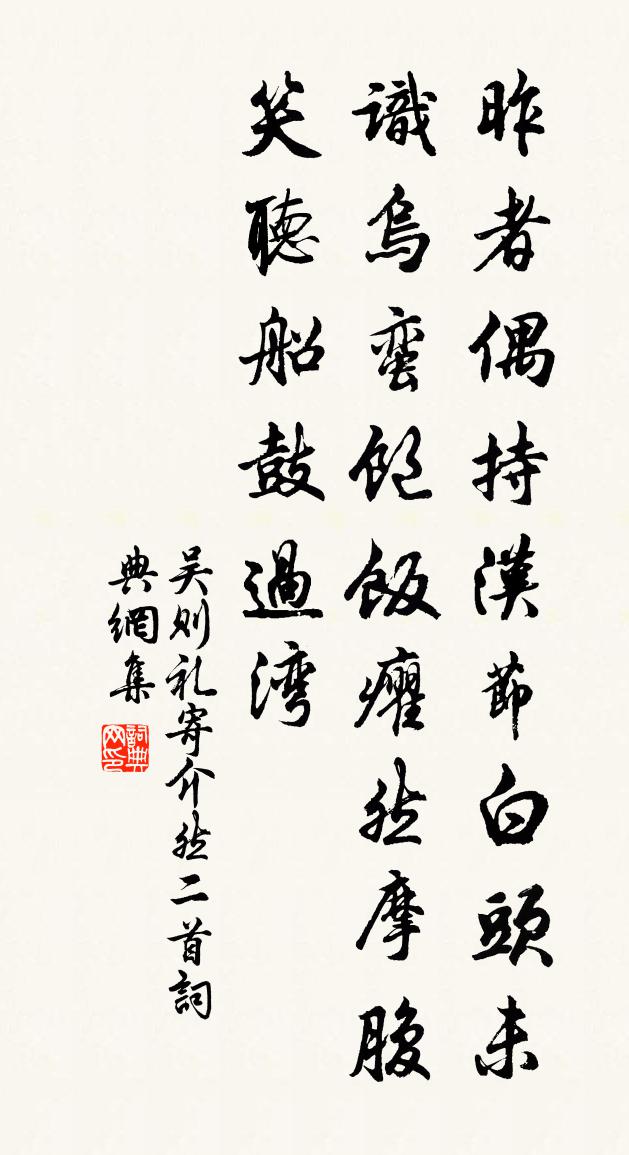 昨者偶持漢節白頭未
識烏蠻飽飯癯然摩腹
笑聽船鼓過灣
吴则礼寄介然二首詞
典網集
詞典网印